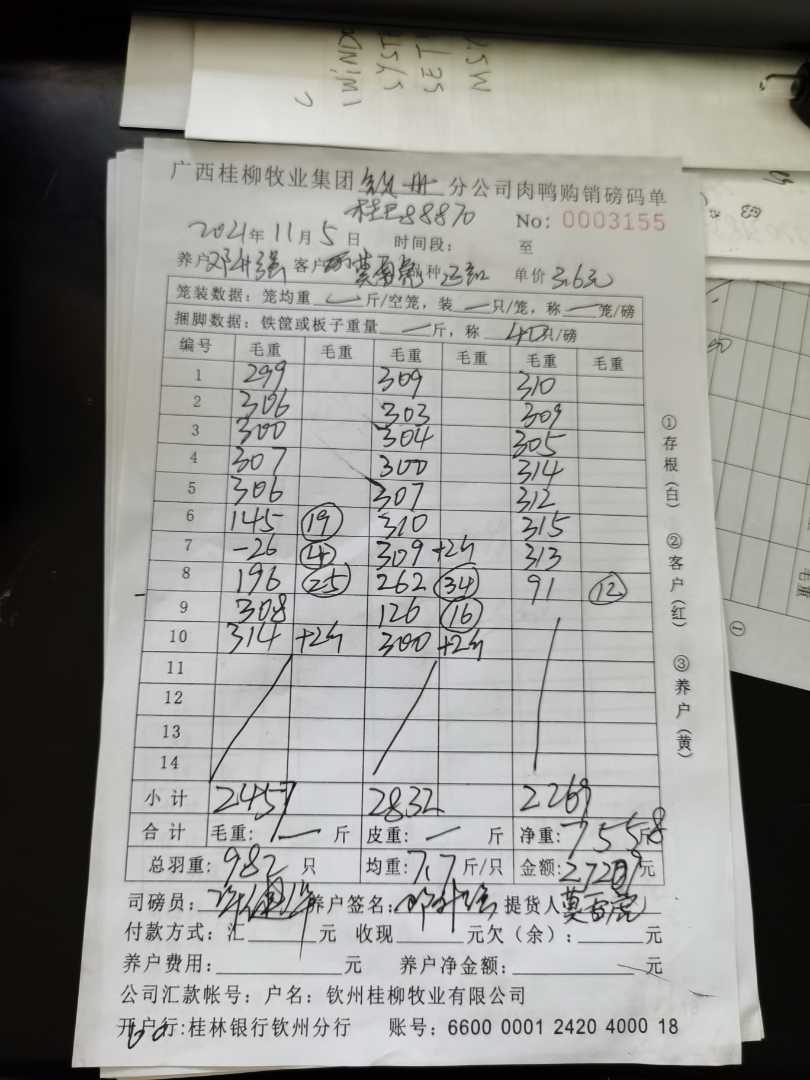 广西桂柳牧业集团 钦州 分公司肉鸭购销磅码单
桂 88870
No: 0003155
2021年 11月 5日 时间段: 至
养户 邓升强 客户 莫雷虎 品种 单价 3.6元
笼装数据: 笼均重 斤/空笼, 装 一 只/笼, 称 一 笼/磅
捆脚数据: 铁筐或板子重量 一 斤, 称 40只/磅
编号 毛重 毛重 毛重 毛重 毛重 毛重
1 299 309 310
2 306 303 309
3 300 304 305
4 307 300 314
5 306 307 312
6 145 19 310 315
7 -26 4 309 +2只 313
8 196 25 262 34 91 12
9 308 126 16
10 314 +2只 300 +2只
11
12
13
14
小计 2457 2832 2269
合计 毛重: 一 斤 皮重: 一 斤 净重: 7558斤
总羽重: 982 只 均重: 7.7 斤/只 金额: 27209元
司磅员: 养户签名: 邓升强 提货人 莫雷虎
付款方式: 汇 元 收现 元欠(余): 元
养户费用: 元 养户净金额: 元
公司汇款帐号: 户名: 钦州桂柳牧业有限公司
开户行:桂林银行钦州分行 账号: 6600 0001 2420 4000 18
①存根(白) ②客户(红) ③养户(黄)
毛重
①